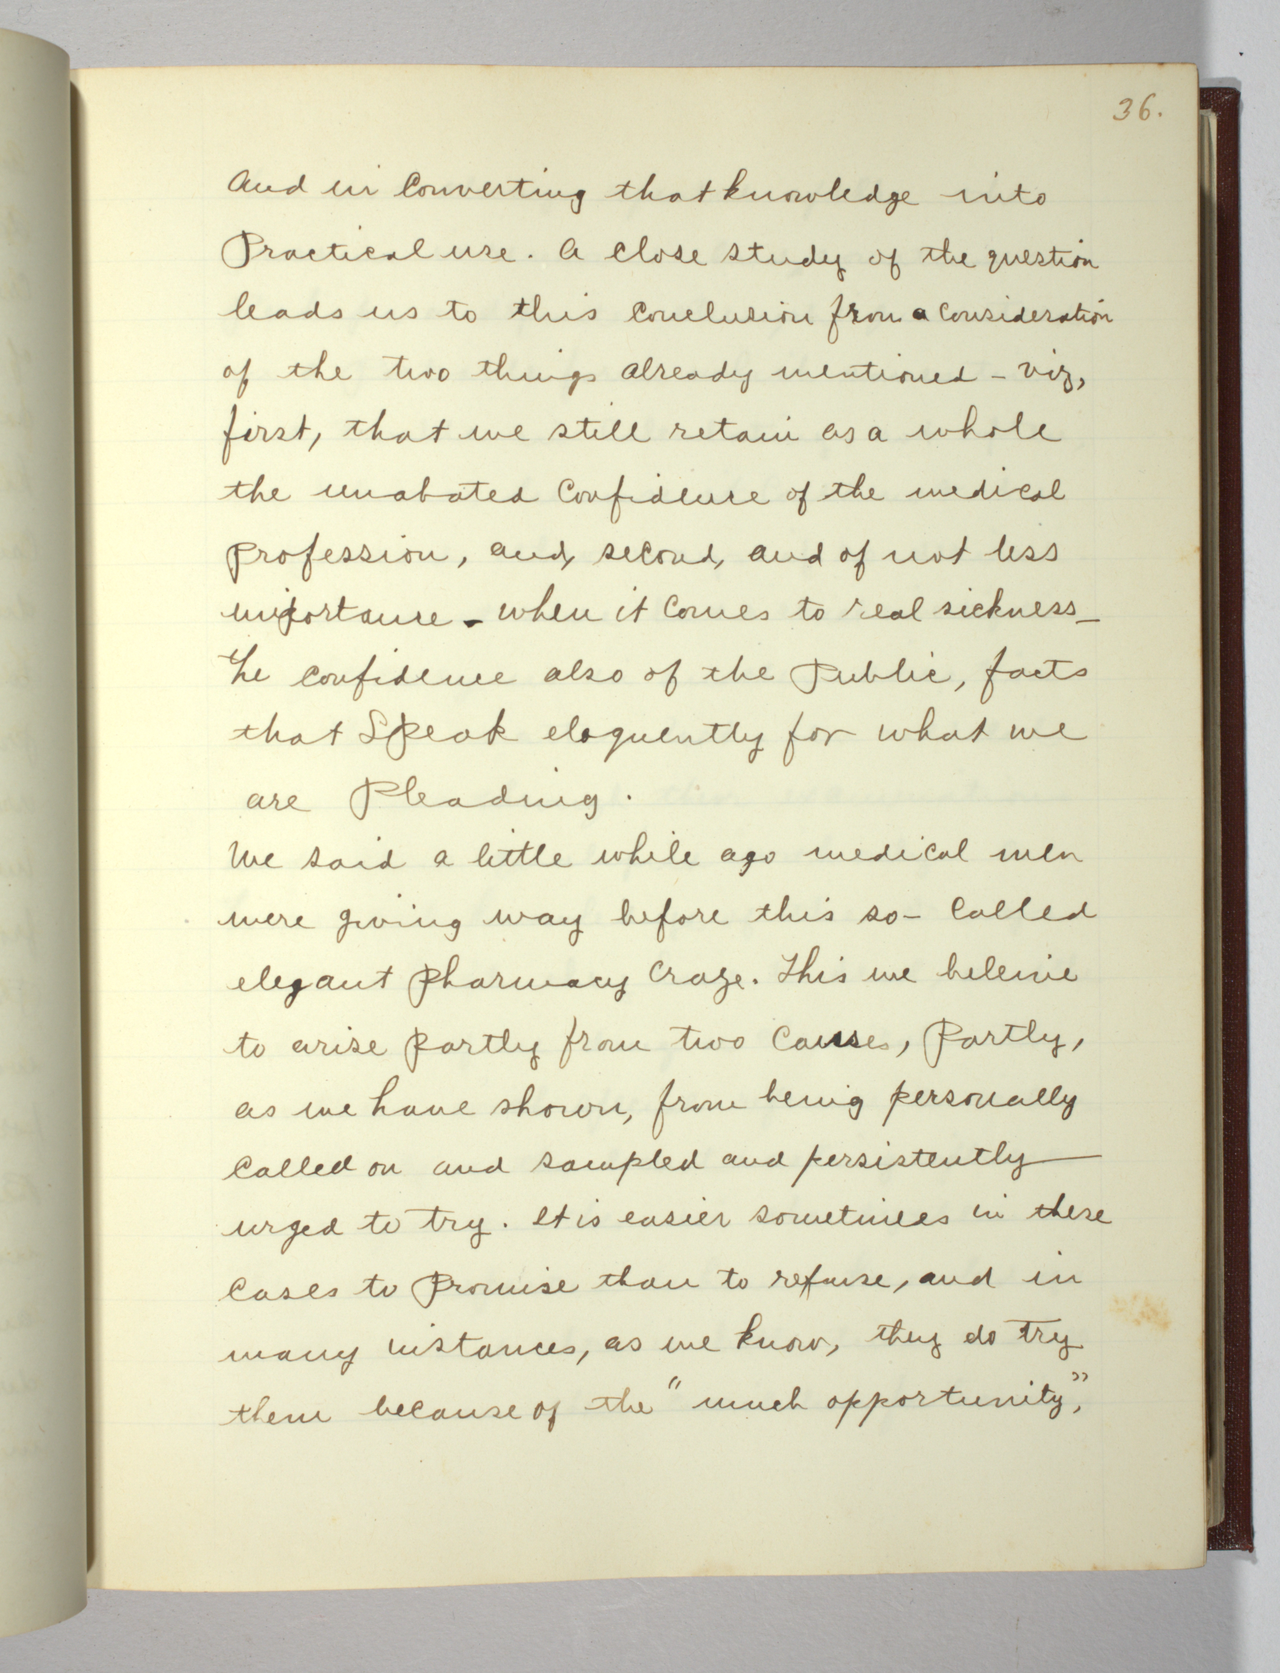 36.
And in Converting that knowledge into
Practical use. A Close study of the question
leads us to this Conclusion from a Consideration
of the two things already mentioned - viz,
first, that we still retain as a whole
the unabated Confidence of the medical
Profession, and, second, and of not less
importance - when it Comes to real sickness -
the Confidence also of the Public, facts
that Speak eloquently for what we
are Pleading.
We said a little while ago medical men
were giving way before this so-Called
elegant Pharmacy Craze. This we beleive
to arise Partly from two Causes, Partly,
as we have shown, from being personally
Called on and sampled and persistently
urged to try. It is easier sometimes in these
Cases to Promise than to refuse, and in
many instances, as we know, they do Try
them because of the "much opportunity",